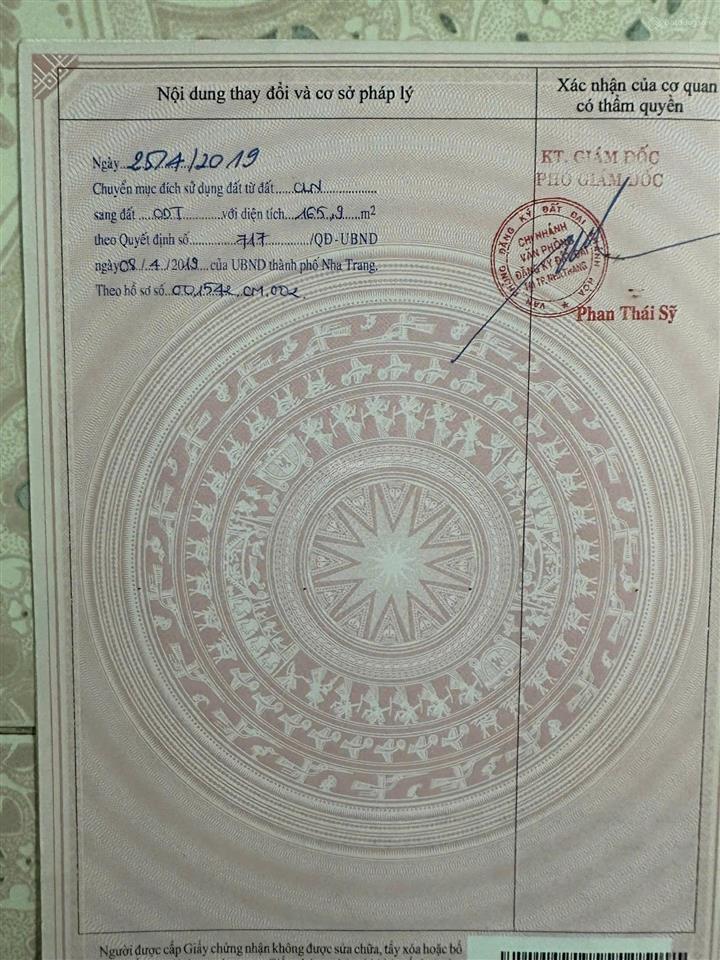 Nội dung thay đổi và cơ sở pháp lý
Xác nhận của cơ quan
có thẩm quyền
Ngày 25/4/2019
Chuyển mục đích sử dụng đất từ đất.....CLN.................
sang đất ...ODT...........với diện tích...165,9....m2
theo Quyết định số............717........./QĐ-UBND
ngày 08./.4./2019...của UBND thành phố Nha Trang.
Theo hồ sơ số..001542.CM.002.
KT. GIÁM ĐỐC
PHÓ GIÁM ĐỐC
VĂN PHÒNG ĐĂNG KÝ ĐẤT ĐAI
CHI NHÁNH
VĂN PHÒNG
ĐĂNG KÝ ĐẤT ĐAI
TẠI TP. NHA TRANG
Phan Thái Sỹ
Người được cấp Giấy chứng nhận không được sửa chữa, tẩy xóa hoặc bổ